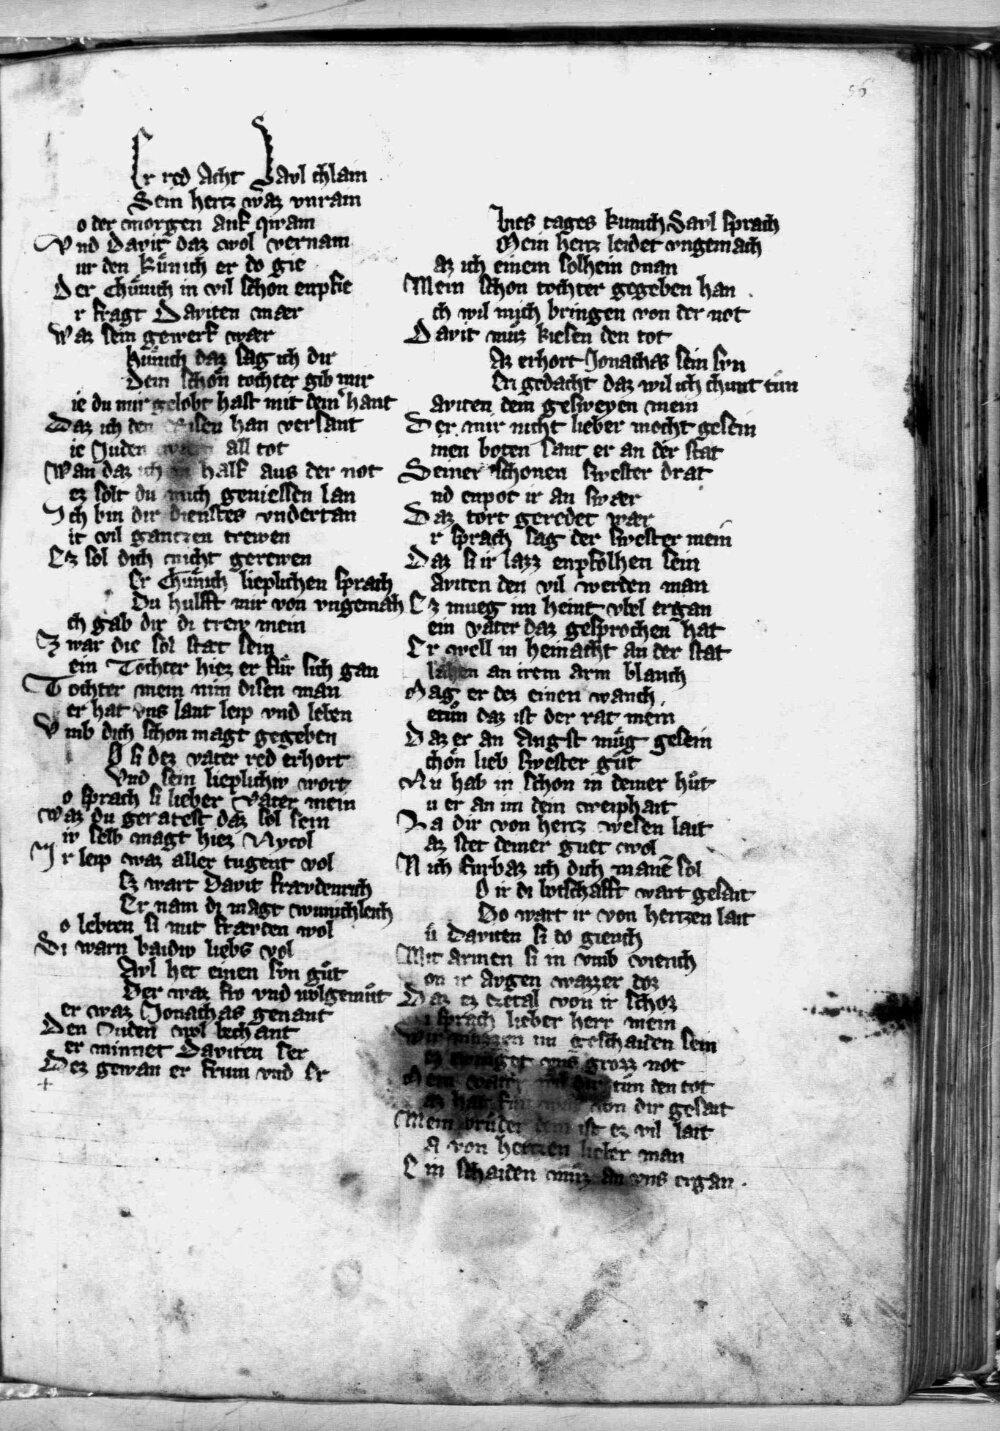 56
Er red Acht Savl chlain
Sein hertz waz vnram
o der morgen auf qwam
Vnd Dauit daz wol vernam
ur den kuͤnich er do gie
Der Chuͤnich in vil schon enpfie
r fragt Dauiten maer
Waz sein gewerf waer
kuͤnich daz sag ich dir
Dein schoͤn tochter gib mir
ie du mir gelobt hast mit dein hant
Daz ich den Risen han versant
ie Juden all tot
Wan daz ich in half aus der not
ez solt du mich geniessen lan
Ich bin dir dienstes vndertan
it vil gantzen trewen
Ez sol dich nicht gerewen
Er Chuͤnich lieplichen sprach
Du hulfft mir von vngemah
ch gab dir di trew mein
Z war die sol stat sein
ein Tochter hiez er fuͤr sich gan
Tochter mein nim disen man
er hat vns lant leip vnd leben
Vmb dich schon magt gegeben
O si dez vater red erhort
Vnd sein lieplichiv wort
o sprach si lieber Vater mein
Waz du geratest daz sol sein
iv selb magt hiez Mycol
Ir leip waz aller tugent vol
Ez wart Dauit fraevdenrich
Er nam di magt wunichleich
o lebten si mit fraevden wol
Di warn baidiv liebs vol
Avl het einen svn guͤt
Der waz fro vnd wolgemuͤt
er waz Jonathas genant
Den Juden wol bechant
er minnet Dauiten ser
Dez gewan er frum vnd er
Ines tages kunich Savl sprach
Mein hertz leidet vngemach
az ich einem solhein man
Mein schon tochter gegeben han
ch wil mich bringen von der not
Dauit muͤz kiesen den tot
Az erhort Jonathas sein svn
Er gedacht daz wil ich chunt tuͤn
auiten dem gesweyen mein
Der mir nicht lieber mocht gesein
inen boten sant er an der stat
Seiner schonen swester drat
nd enpot ir an swaer
Daz tort geredet waer
r sprach sag der swester mein
Daz si ir lazz enpfolhen sein
auiten den vil werden man
Ez mueg im heint vbel ergan
ein vater daz gesprochen hat
Er well in heinacht an der stat
lahen an irem arm blanch
Mag er dez einen wanch
etuͤn daz ist der rat mein
Daz er an Angst muͤg gesein
choͤn lieb swester guͤt
Nu hab in schon in deiner huͤt
u er an im dein weiphait
La dir von hertz wesen lait
az stet deiner guet wol
N ich furbaz ich dich manen sol
O ir di botschafft wart gesait
Do wart ir von hertzen lait
uͤ Dauiten si do giench
Mit armen si in vmb viench
on ir avgen wazzer doz
Daz ez zetal von ir schoz
i sprach lieber herr mein
Wir muͤzzen nu geschaiden sein
ez twinget vns grozz not
Mein vater wil dir tuͤn den tot
az hat von dir gesait
Mein bruͤder dem ist ez vil lait
a von hertzen lieber man
Ein schaiden muͤz an vns ergan.